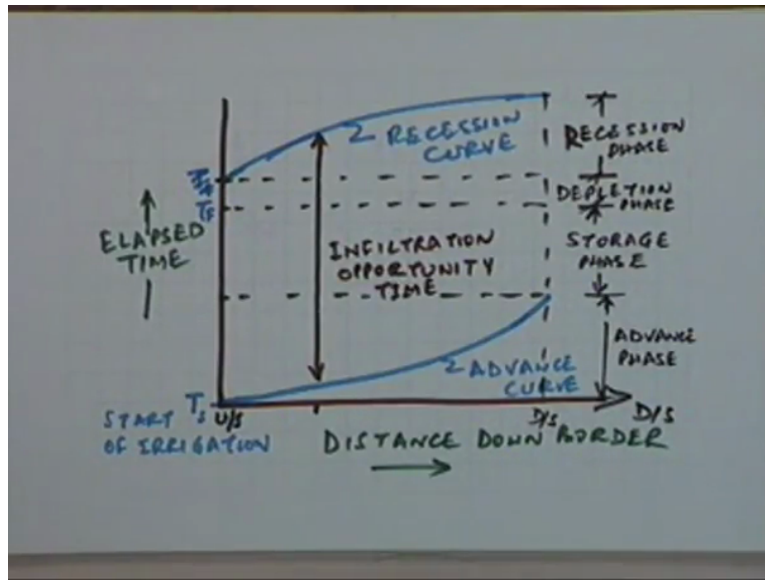 RECESSION
CURVE
RECESSION
PHASE
DEPLETION
PHASE
STORAGE
PHASE
ADVANCE
PHASE
ELAPSED
TIME
INFILTRATION
OPPORTUNITY
TIME
ADVANCE
CURVE
Ts
U/S
D/S
D/S
START
OF IRRIGATION
DISTANCE DOWN BORDER